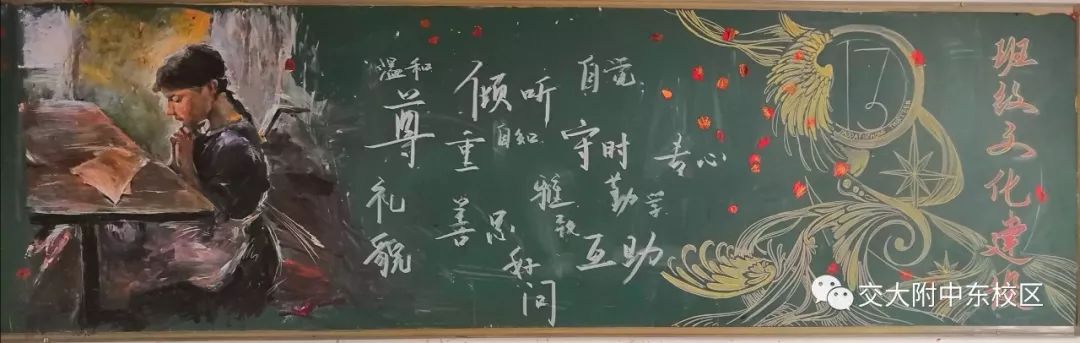 温和
尊重
礼貌
倾听
自知
善思
好问
雅致
自觉
守时
勤学
互助
专心
13
班级文化建设
交大附中东校区